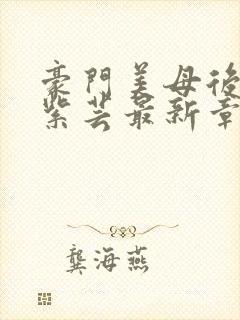 豪門美母後
紫芸最新章
龔海燕